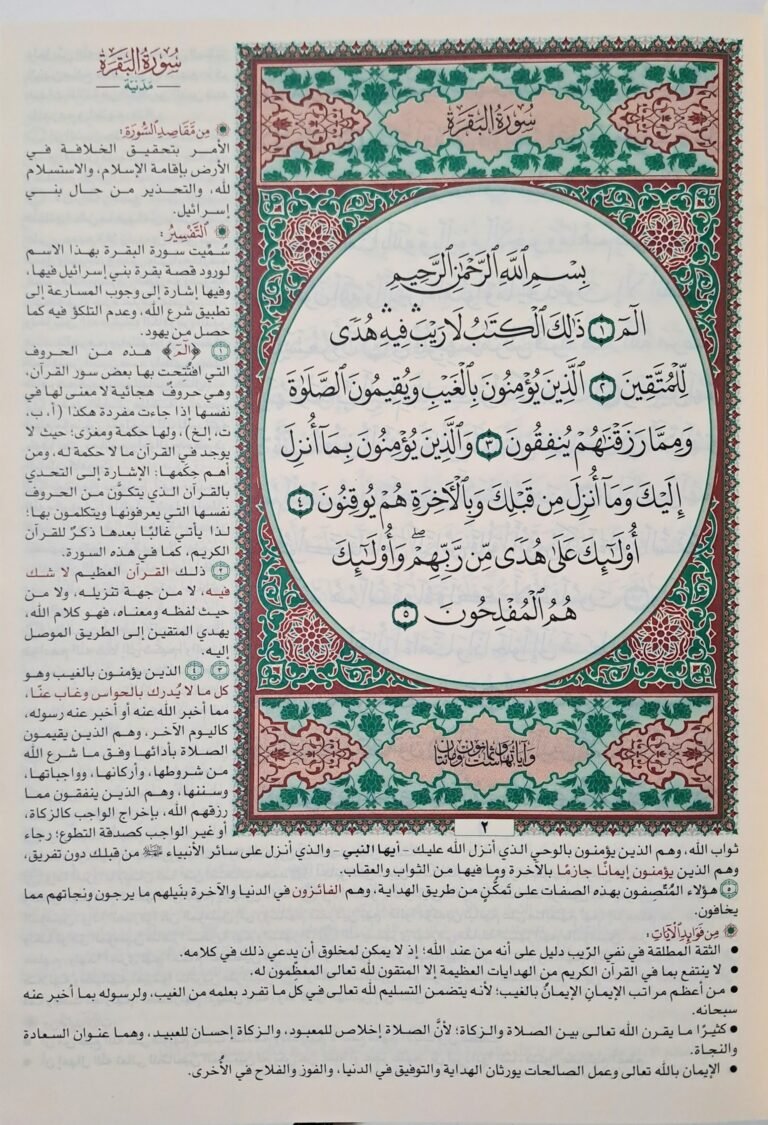 سُورَةُ البَقَرَةِ
مَدَنيَّة
سُورَةُ البَقَرَةِ
بِسْمِ ٱللَّهِ ٱلرَّحْمَٰنِ ٱلرَّحِيمِ
الٓمٓ ١ ذَٰلِكَ ٱلْكِتَٰبُ لَا رَيْبَ ۛ فِيهِ ۛ هُدًى
لِّلْمُتَّقِينَ ٢ ٱلَّذِينَ يُؤْمِنُونَ بِٱلْغَيْبِ وَيُقِيمُونَ ٱلصَّلَوٰةَ
وَمِمَّا رَزَقْنَٰهُمْ يُنفِقُونَ ٣ وَٱلَّذِينَ يُؤْمِنُونَ بِمَآ أُنزِلَ
إِلَيْكَ وَمَآ أُنزِلَ مِن قَبْلِكَ وَبِٱلْأٓخِرَةِ هُمْ يُوقِنُونَ ٤
أُو۟لَٰٓئِكَ عَلَىٰ هُدًى مِّن رَّبِّهِمْ ۖ وَأُو۟لَٰٓئِكَ
هُمُ ٱلْمُفْلِحُونَ ٥
وَآيَاتُهَا سِتٌّ وَثَمَانُونَ وَمِئَتَانِ
٢
مِن مَّقَاصِدِ ٱلسُّورَةِ:
الأمر بتحقيق الخلافة في
الأرض بإقامة الإسلام، والاستسلام
لله، والتحذير من حال بني
إسرائيل.
ٱلتَّفْسِيرُ:
سُمِّيت سورة البقرة بهذا الاسم
لورود قصة بقرة بني إسرائيل فيها،
وفيها إشارة إلى وجوب المسارعة إلى
تطبيق شرع الله، وعدم التلكؤ فيه كما
حصل من يهود.
١ ﴿الٓمٓ﴾ هذه من الحروف
التي افتُتحت بها بعض سور القرآن،
وهي حروفٌ هجائية لا معنى لها في
نفسها إذا جاءت مفردة هكذا (أ، ب،
ت، إلخ)، ولها حكمة ومغزى؛ حيث لا
يوجد في القرآن ما لا حكمة له، ومن
أهم حكَمها: الإشارة إلى التحدي
بالقرآن الذي يتكوَّن من الحروف
نفسها التي يعرفونها ويتكلمون بها؛
لذا يأتي غالبًا بعدها ذكرٌ للقرآن
الكريم، كما في هذه السورة.
٢ ذلك القرآن العظيم لا شك
فيه، لا من جهة تنزيله، ولا من
حيث لفظه ومعناه، فهو كلام الله،
يهدي المتقين إلى الطريق الموصل
إليه.
٣ ٤ الذين يؤمنون بالغيب وهو
كل ما لا يُدرك بالحواس وغاب عنّا،
مما أخبر الله عنه أو أخبر عنه رسوله،
كاليوم الآخر، وهم الذين يقيمون
الصلاة بأدائها وفق ما شرع الله
من شروطها، وأركانها، وواجباتها،
وسننها، وهم الذين ينفقون مما
رزقهم الله، بإخراج الواجب كالزكاة،
أو غير الواجب كصدقة التطوع؛ رجاء
ثواب الله، وهم الذين يؤمنون بالوحي الذي أنزل الله عليك - أيها النبي - والذي أنزل على سائر الأنبياء ﷺ من قبلك دون تفريق،
وهم الذين يؤمنون إيمانًا جازمًا بالآخرة وما فيها من الثواب والعقاب.
٥ هؤلاء المُتّصِفون بهذه الصفات على تَمكُّنٍ من طريق الهداية، وهم الفائزون في الدنيا والآخرة بنَيلهم ما يرجون ونجاتهم مما
يخافون.
مِن فَوَائِدِ ٱلْآيَاتِ:
• الثقة المطلقة في نفي الرّيب دليل على أنه من عند الله؛ إذ لا يمكن لمخلوق أن يدعي ذلك في كلامه.
• لا ينتفع بما في القرآن الكريم من الهدايات العظيمة إلا المتقون لله تعالى المعظِّمون له.
• من أعظم مراتب الإيمانِ الإيمانُ بالغيب؛ لأنه يتضمن التسليم لله تعالى في كل ما تفرد بعلمه من الغيب، ولرسوله بما أخبر عنه
سبحانه.
• كثيرًا ما يقرن الله تعالى بين الصلاة والزكاة؛ لأنَّ الصلاة إخلاص للمعبود، والزكاة إحسان للعبيد، وهما عنوان السعادة
والنجاة.
• الإيمان بالله تعالى وعمل الصالحات يورثان الهداية والتوفيق في الدنيا، والفوز والفلاح في الأُخرى.